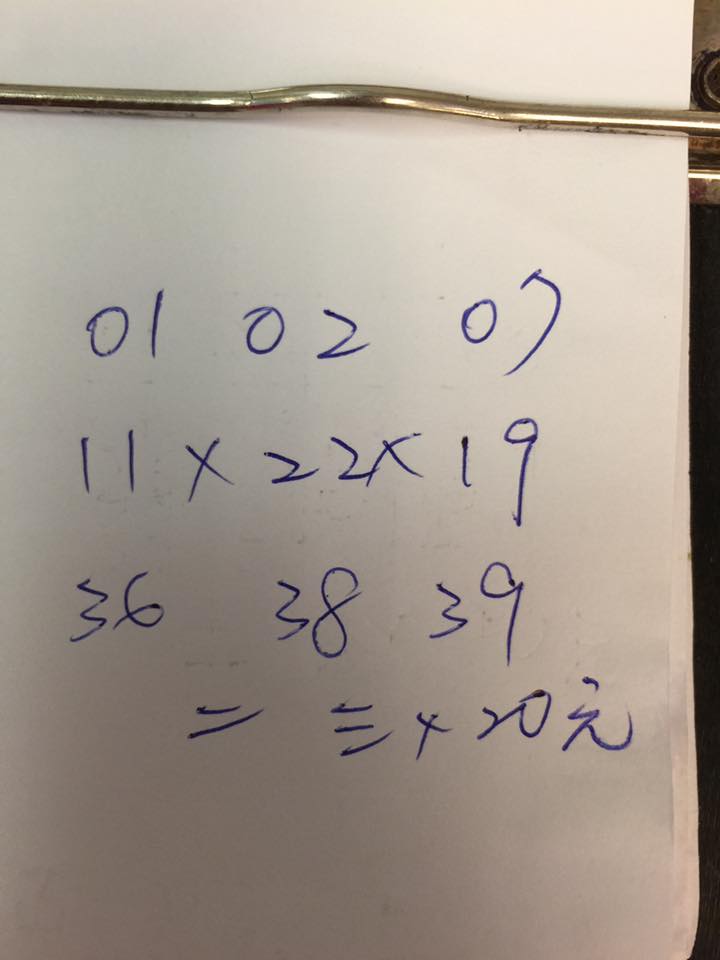 01 02 07
11 × 22 × 19
36 38 39
二 三 × 20元